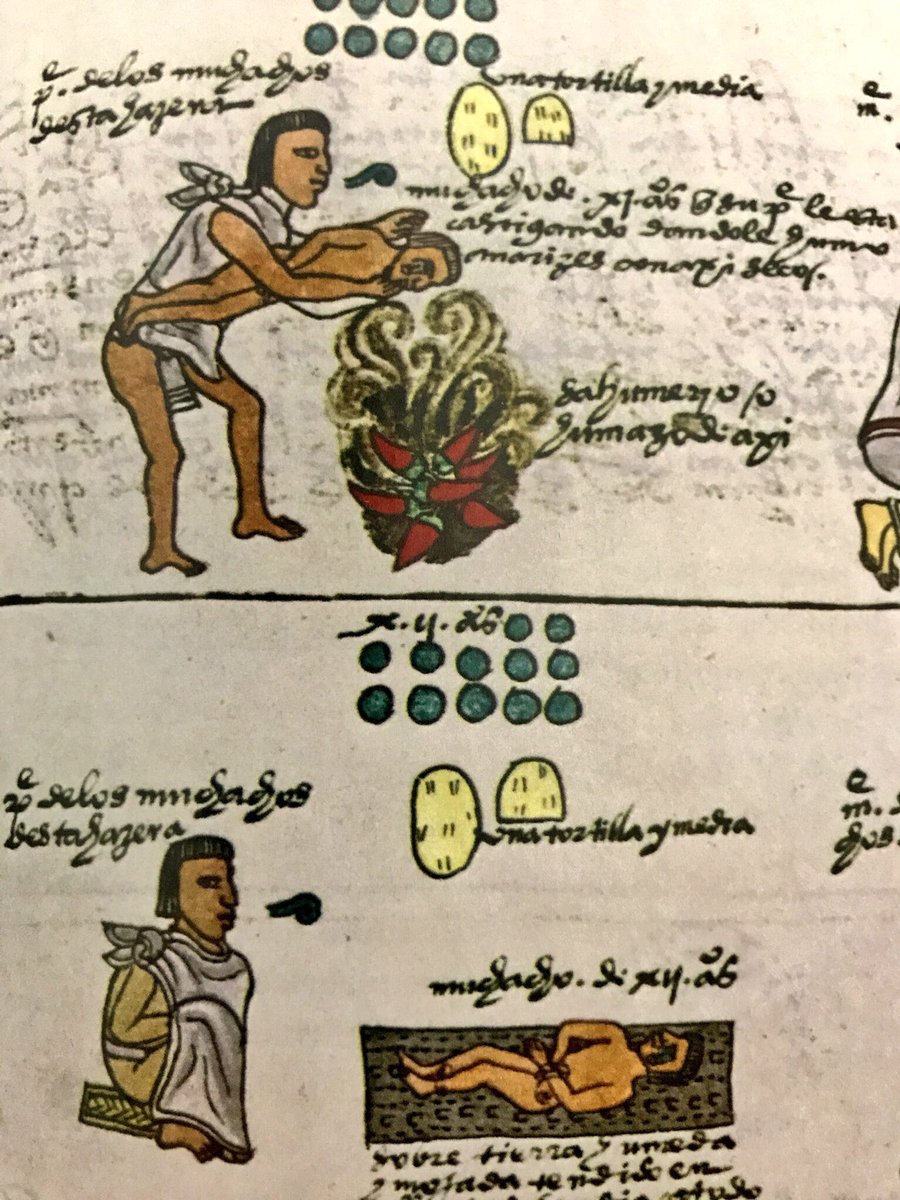 pᵉ. delos muchachos
desta hazera
una tortilla y media
m.ᵉ
muchacho de. xj. aºs q̄ su pᵉ le esta
castigando dandole humo
a narizes con axi secos.
sahumerjo /o
humazo di axi
x.ij. aºs
pᵉ delos muchachos
desta hazera
una tortilla y media
m.ᵉ
muchacho. de xij. aºs
sobre tierra y umeda
y mojada tendido en